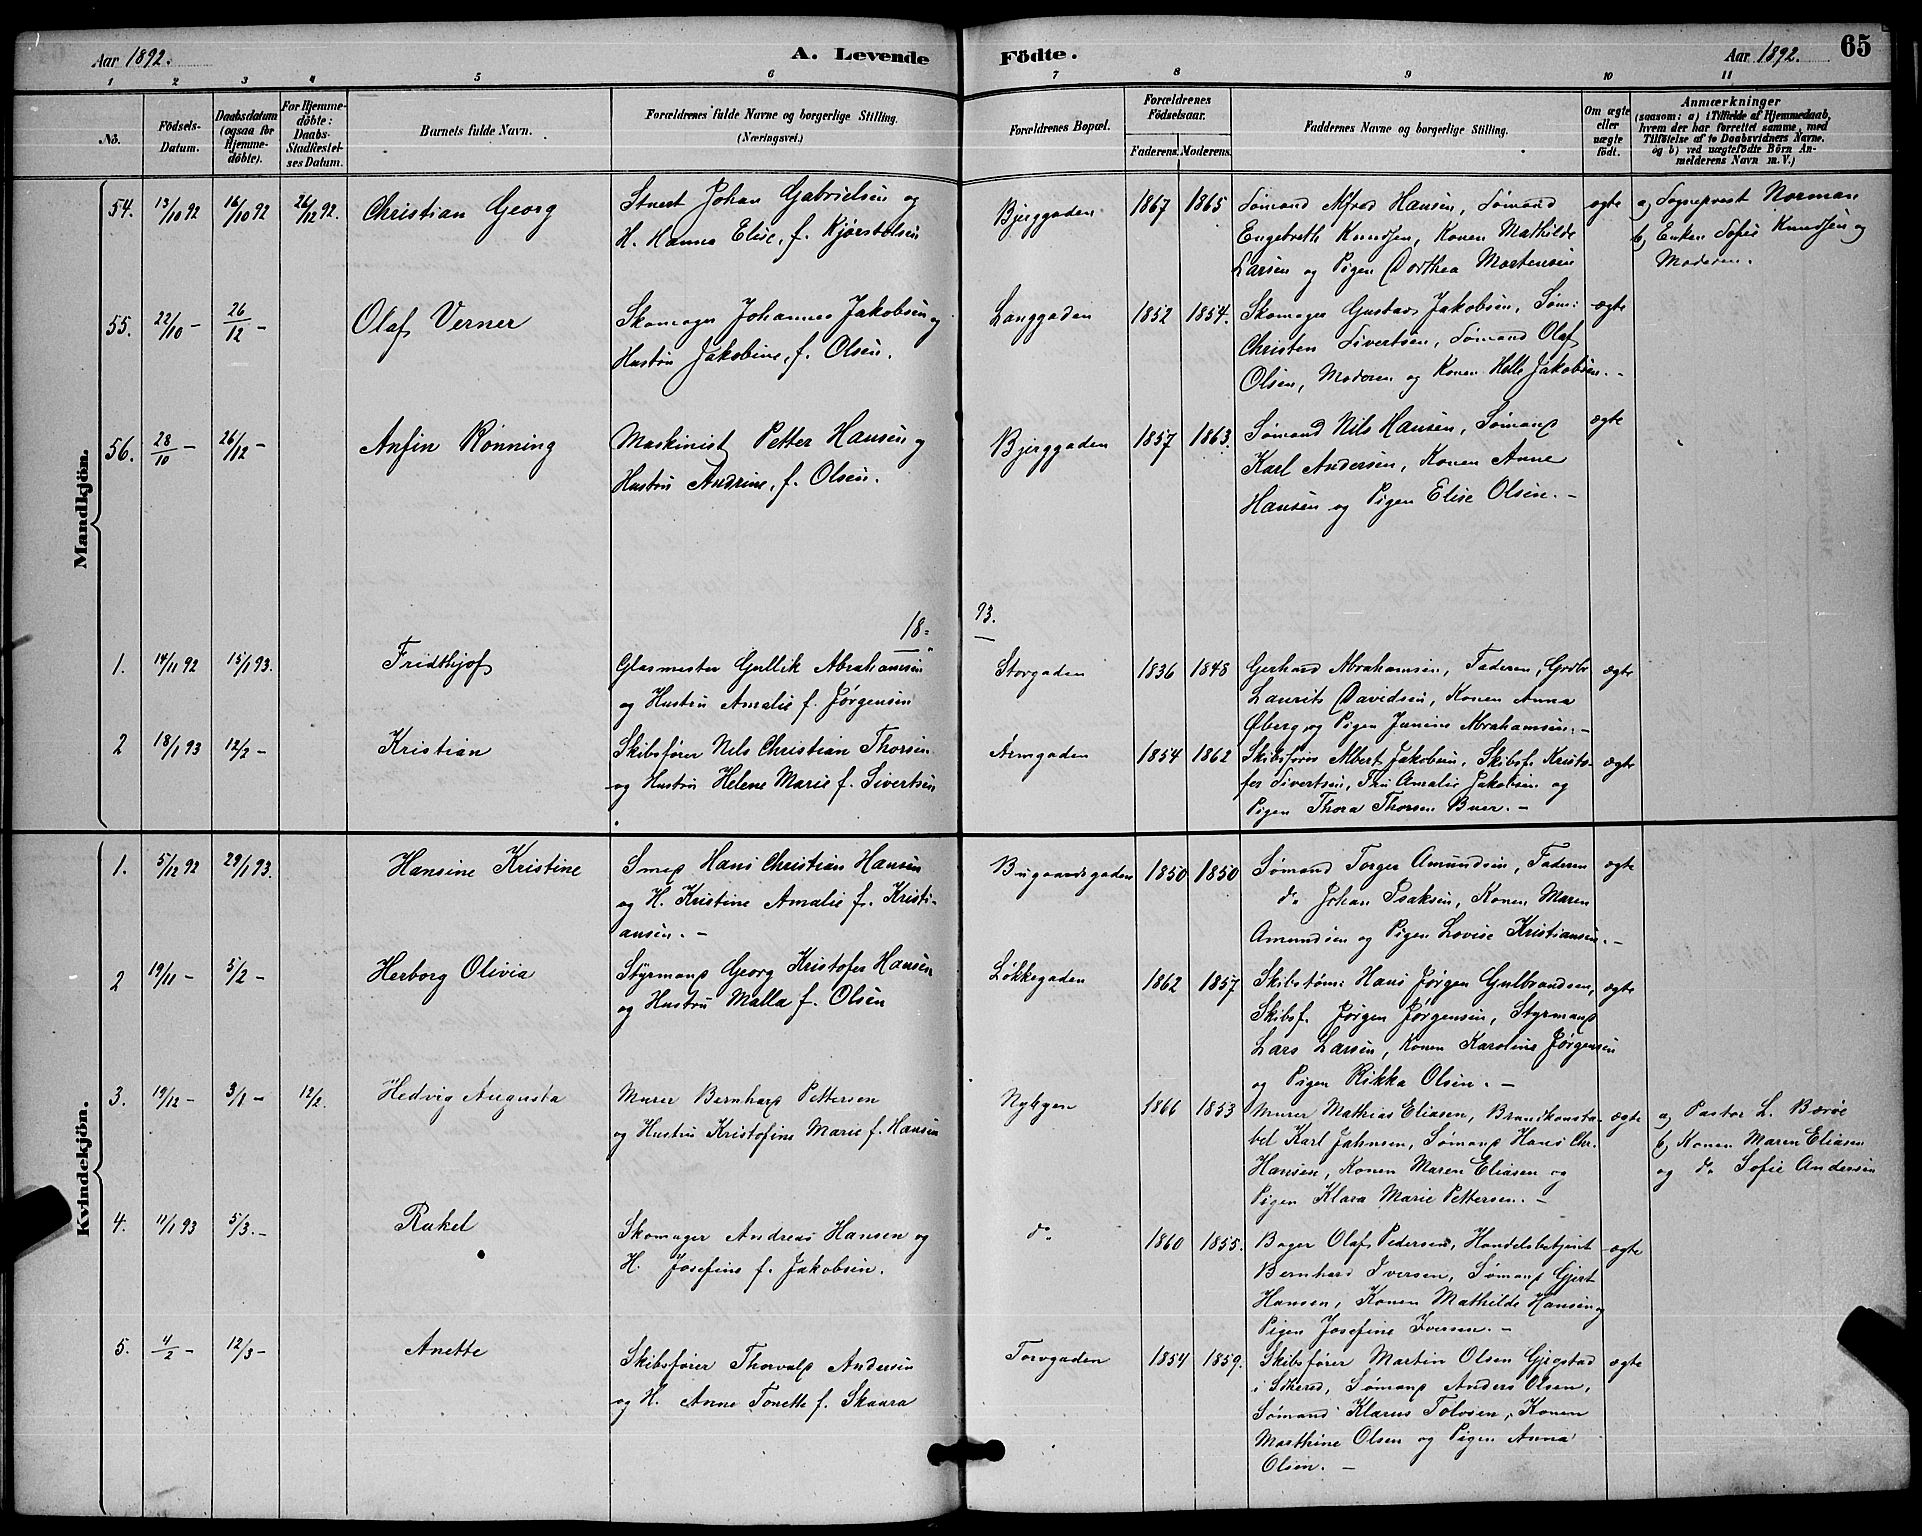 Aar 1892. A. Levende Födte. Aar 1892. 65
1 2 3 4 5 6 7 8 9 10 11
No. Födsels-Datum. Daabsdatum (ogsaa for Hjemme-døbte). For Hjemme-döbte: Daabs-Stadfæstel-ses Datum. Barnets fulde Navn. Forældrenes fulde Navne og borgerlige Stilling. (Næringsvei.) Forældrenes Bopæl. Forældrenes Födselsaar. Faderens. Moderens. Faddernes Navne og borgerlige Stilling. Om ægte eller uægte födt. Anmærkninger (saasom: a) i Tilfælde af Hjemmedaab, hvem der har forrettet samme, med Tilföielse af to Daabsvidners Navne. og b) ved uægtefödte Börn An-melderens Navn m. V.)
Mandkjön.
54. 13/10 92 16/10 92 26/12 92. Christian Georg
Johan Gabrielsen og
H. Hanna Elise, f. Kjørstolsen
Bjerggaden 1867 1865
Sømand Alfred Hansen, Sømand
Engebreth Knudsen, Konen Mathilde
Larsen og Pigen Dorthea Mortensen
ægte
a, Sogneprest Norman
b, Enken Sofie Knudsen og
Moderen.
55. 22/10 – 26/12 – Olaf Verner
Skomager Johannes Jakobsen og
Hustru Jakobine, f. Olsen.
Langgaden 1852 1854.
Skomager Gustav Jakobsen, Søm:
Christen Sivertsen, Sømand Olaf
Olsen, Moderen og Konen Helle Jakobsen. –
ægte
56. 28/10 – 26/12 – Anfin Rønning
Maskinist Petter Hansen og
Hustru Andrine, f. Olsen.
Bjerggaden 1857 1863.
Sømand Nils Hansen, Sømand
Karl Andersen, Konen Anne
Hansen og Pigen Elise Olsen. –
ægte
18= 93.
1. 14/11 92 15/1 93. Fridthjof
Glasmester Gullik Abrahamsen
og Hustru Amalie f. Jørgensen
Storgaden 1836 1848
Gerhard Abrahamsen, Faderen,
Laurits Davidsen, Konen Anna
Øberg og Pigen Janine Abrahamsen. –
ægte
2 18/1 93 12/2 – Kristian
Skibsfører Nils Christian Thorsen
og Hustru Helene Marie f. Sivertsen
1854 1862
Skibsfører Albert Jakobsen, Skibsf. Kristo-
fer Sivertsen, Fru Amalie Jakobsen og
Pigen Thora Thorsen Buer. –
ægte
Kvindekjön.
1. 5/12 92 29/1 93. Hansine Kristine
Smed Hans Christian Hansen
og H. Kristine Amalie f. Kristi-
ansen. –
Bugaardsgaden 1850 1850
Sømand Torger Amundsen, Faderen
do Johan Isaksen, Konen Maren
Amundsen og Pigen Lovise Kristiansen. –
ægte
2 19/11 – 5/2 – Herborg Olivia
Styrmand Georg Kristofer Hansen
og Hustru Malla f. Olsen
Løkkegaden 1862 1857
Skibstøm: Hans Jørgen Gulbrandsen,
Skibsf. Jørgen Jørgensen, Styrmand
Lars Larsen, Konen Karoline Jørgensen
og Pigen Rikka Olsen. –
ægte
3. 19/12 – 3/1 – 12/2. Hedvig Augusta
Murer Bernhard Pettersen
og Hustru Kristofine Marie f. Hansen
Nybyen 1866 1853
Murer Mathias Eliasen, Brandkonsta-
bel Karl Jahnsen, Sømand Hans Chr.
Hansen, Konen Maren Eliasen og
Pigen Klara Marie Pettersen. –
ægte
a, Pastor L. Barøe
b, Konen Maren Eliasen
og do Sofie Andersen
4. 11/1 93 5/3. – Rakel
Skomager Andreas Hansen og
H. Josefine f. Jakobsen.
do 1860 1855.
Bager Olaf Pedersen, Handelsbetjent
Bernhard Iversen, Sømand Gjert
Hansen, Konen Mathilde Hansen og
Pigen Josefine Iversen. –
ægte
5. 4/2 – 12/3 – Anette
Skibsfører Thorvald Andersen
og H. Anne Tonette f. Skaara
Torvgaden 1854 1859.
Skibsfører Martin Olsen Gjøgstad
i Skered, Sømand Anders Olsen,
Sømand Klarus Tolvsen, Konen
Marthine Olsen og Pigen Anna
Olsen. –
ægte